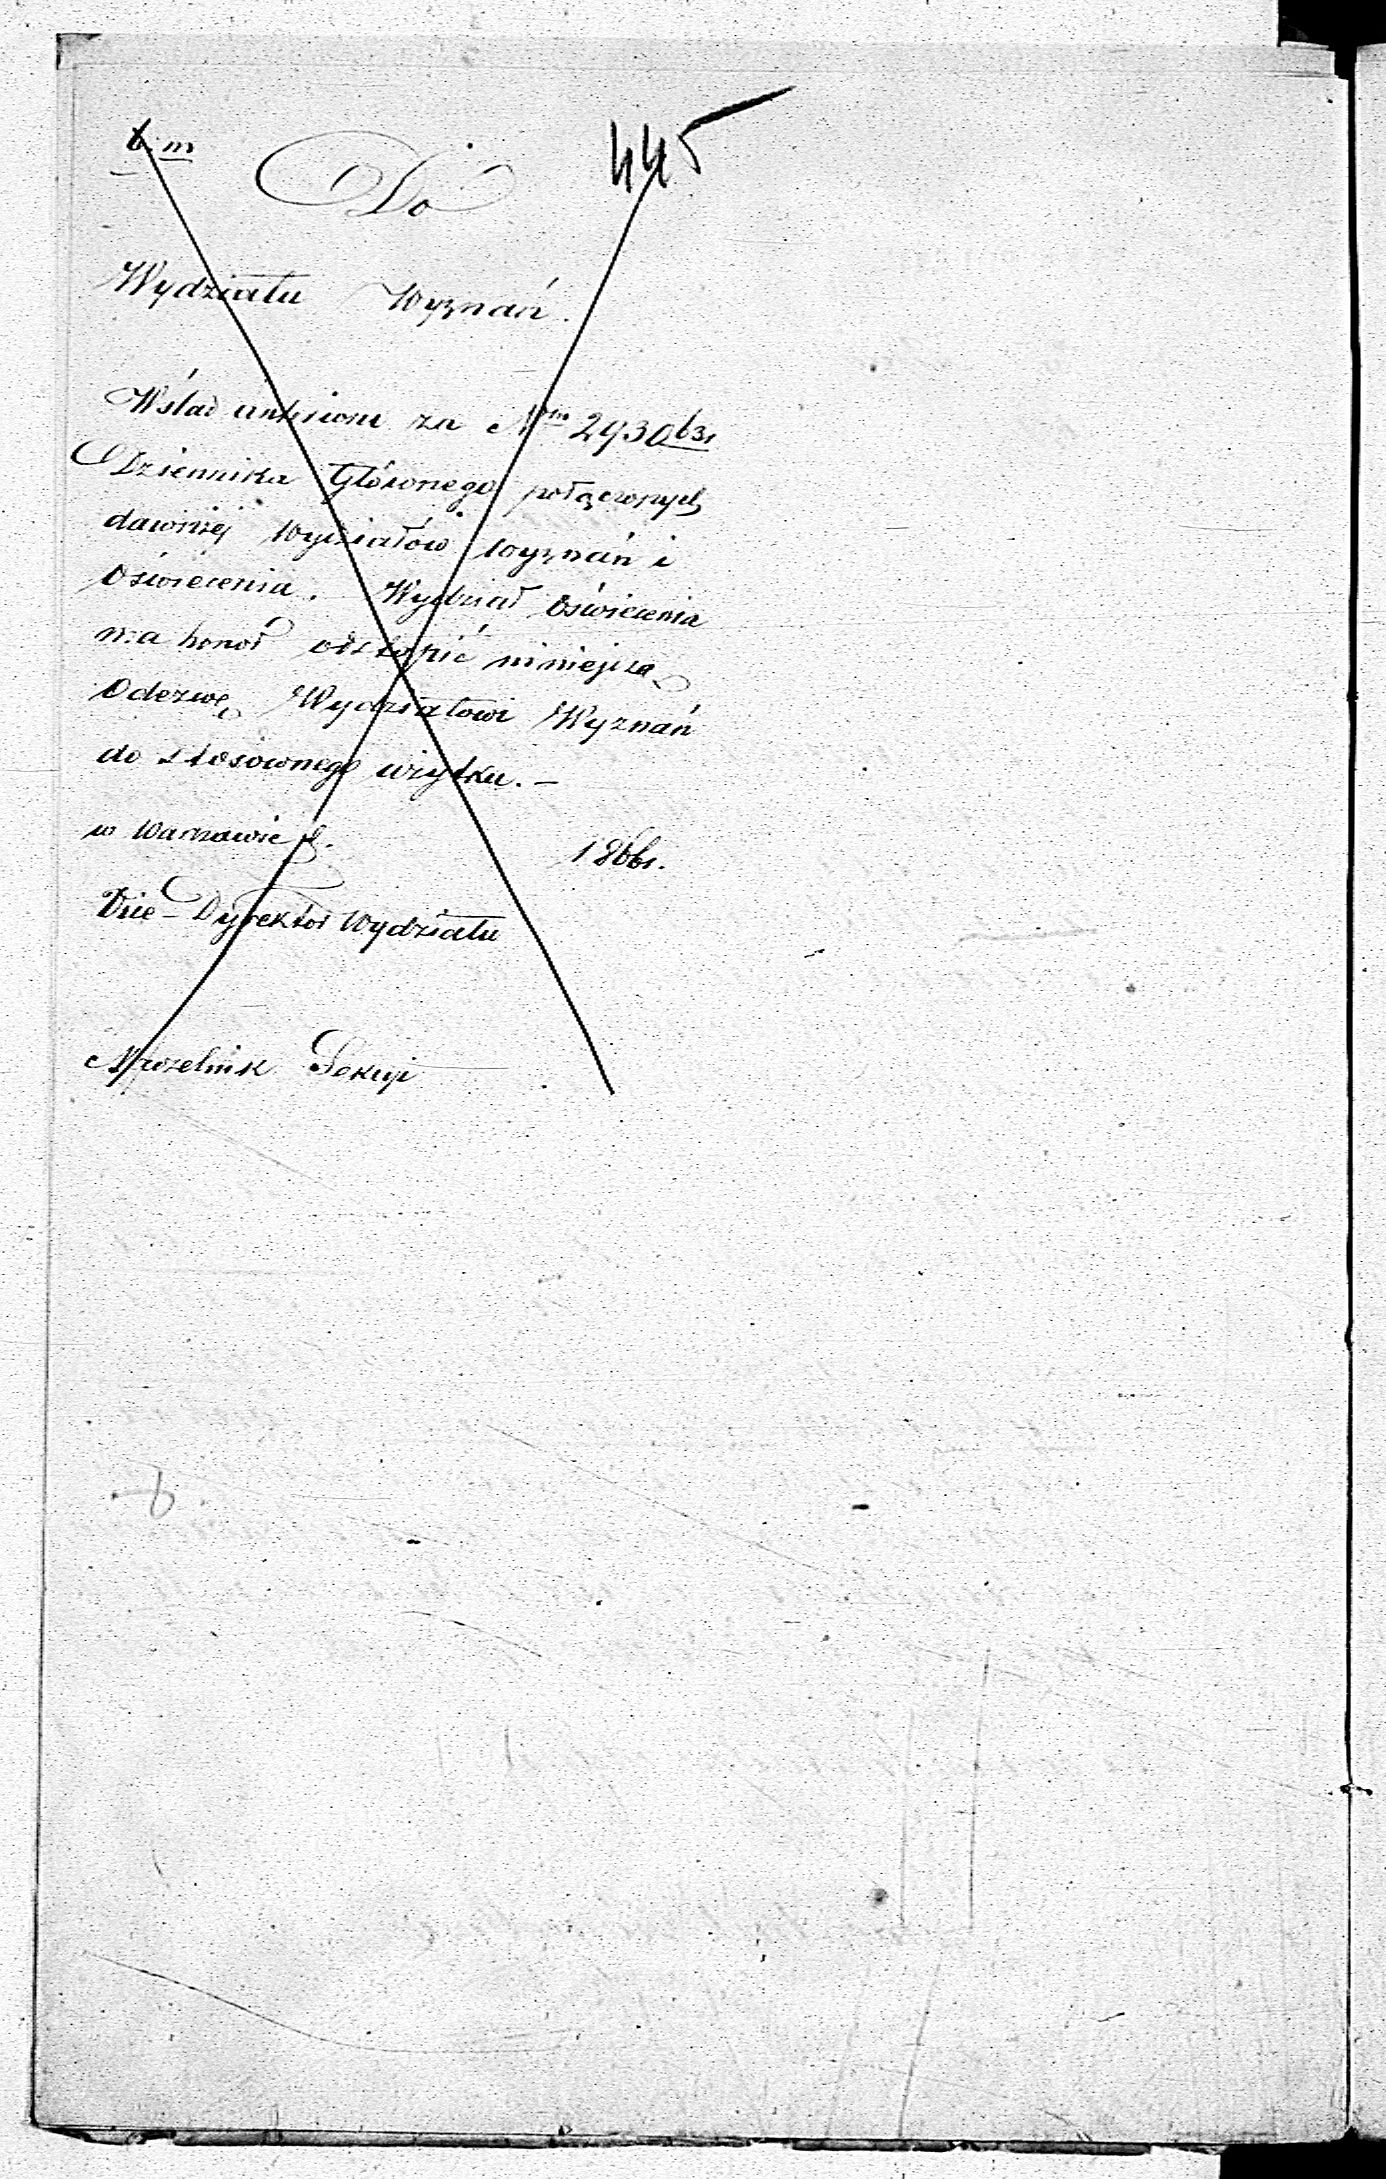 b. m
445
Do
Wydziału Wyznań.
Wślad za Nrm 2930
Dziennika Głównego połączonych
dawniej Wydziałów Wyznań i
Oświecenia. Wydział Oświecenia
ma honor odstąpić niniejszą
Odezwę, Wydziałowi Wyznań
do stosownego użytku. –
w Warszawie d. 1861.
Vice-Dyrektor Wydziału
Naczelnik Sekcji